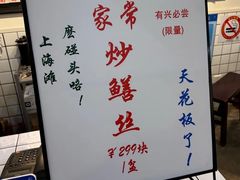 上海滩
麽碰头咯！
家常
炒鳝丝
￥299块
1盆
有兴必尝
(限量)
天花板了！